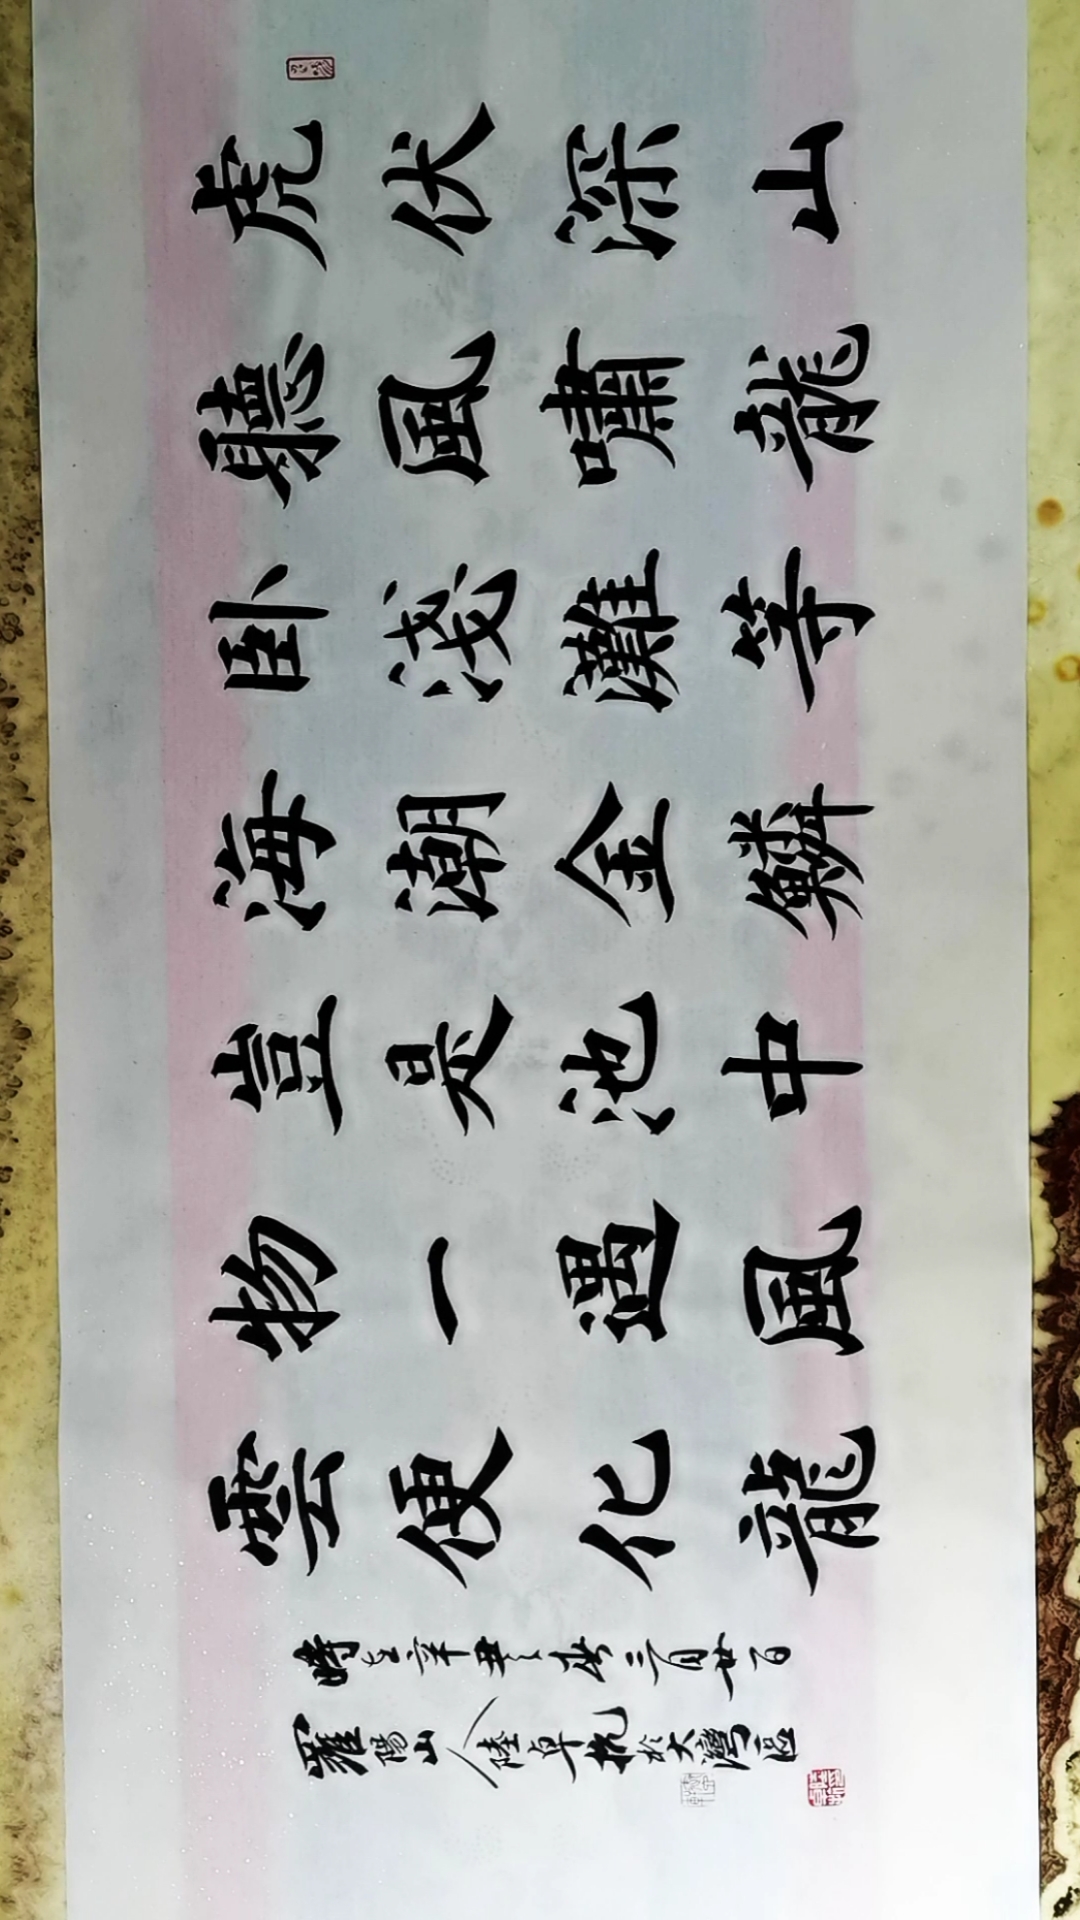 虎伏深山
聽風嘯龍
卧淺灘等
海潮金鱗
豈是池中
物一遇風
雲便化龍
時在辛丑之春三月廿日
羅陽山人陸卓於大灣區